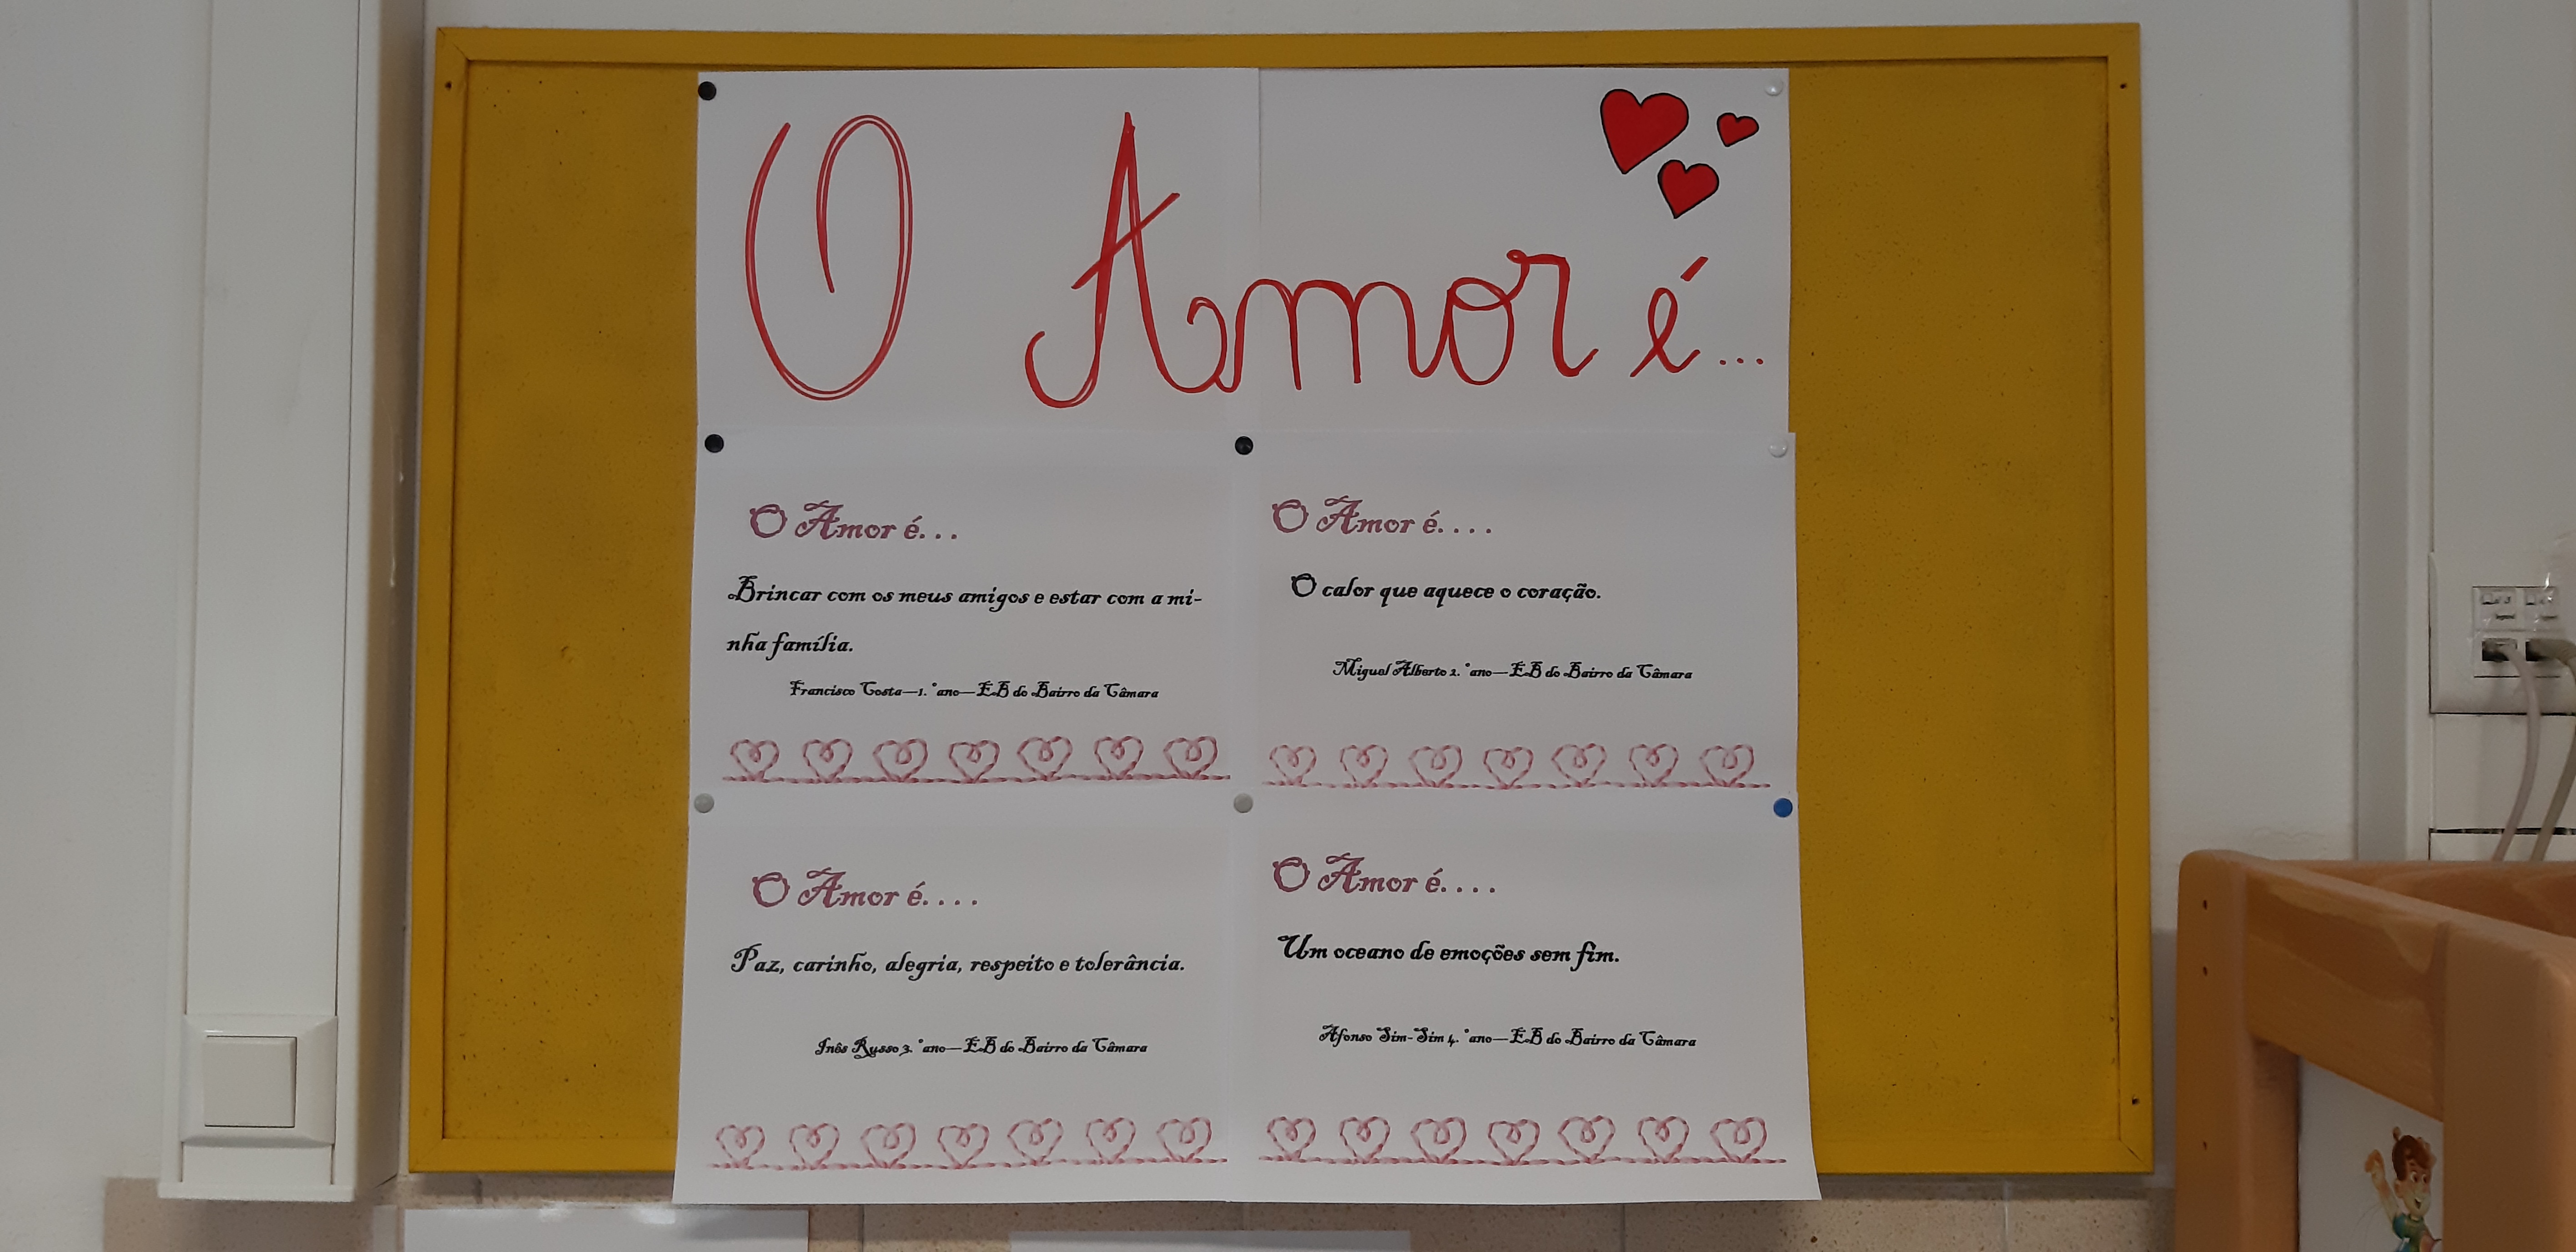 O Amor é...
O Amor é...
Brincar com os meus amigos e estar com a mi-
nha família.
Francisco Costa—1.º ano—EB do Bairro da Câmara
O Amor é....
O calor que aquece o coração.
Miguel Alberto 2.º ano—EB do Bairro da Câmara
O Amor é....
Paz, carinho, alegria, respeito e tolerância.
Inês Russo 3.º ano—EB do Bairro da Câmara
O Amor é....
Um oceano de emoções sem fim.
Afonso Sim-Sim 4.º ano—EB do Bairro da Câmara